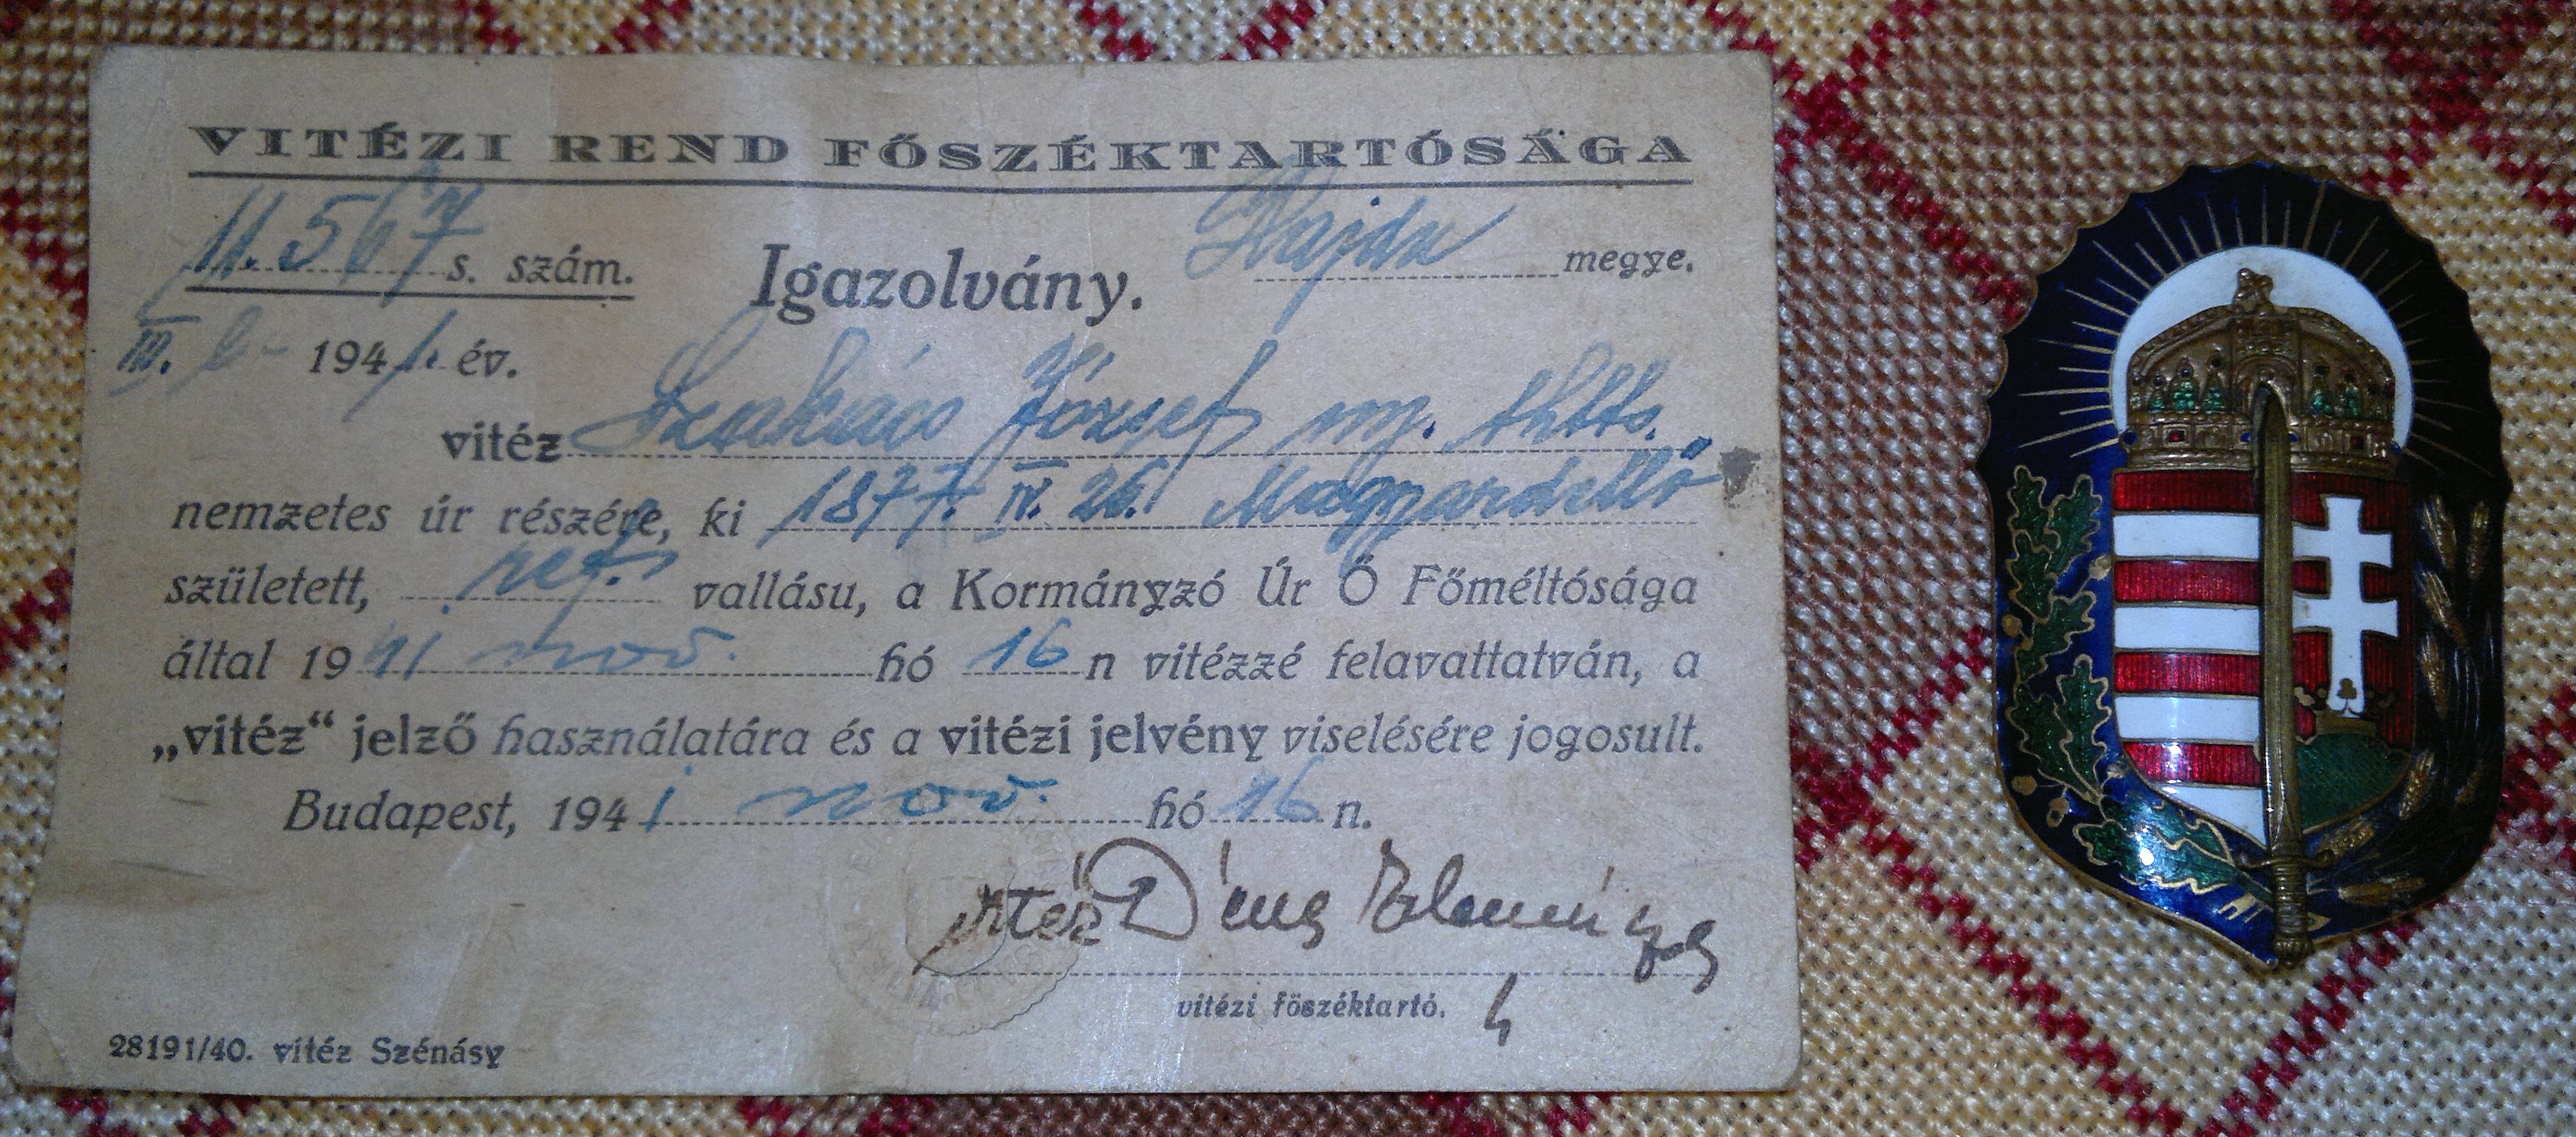 VITÉZI REND FŐSZÉKTARTÓSÁGA
11.567 s. szám. Igazolvány. Hajdu megye.
III. 194 1. év.
vitéz József ny. thtts.
nemzetes úr részére, ki 1877. IV. 26. Magyardellő
született, ref. vallásu, a Kormányzó Úr Ő Főméltósága
által 19 41 nov. hó 16 n vitézzé felavattatván, a
„vitéz“ jelző használatára és a vitézi jelvény viselésére jogosult.
Budapest, 194 1 nov. hó 16 n.
vitéz
vitézi főszéktartó.
28191/40. vitéz Szénásy